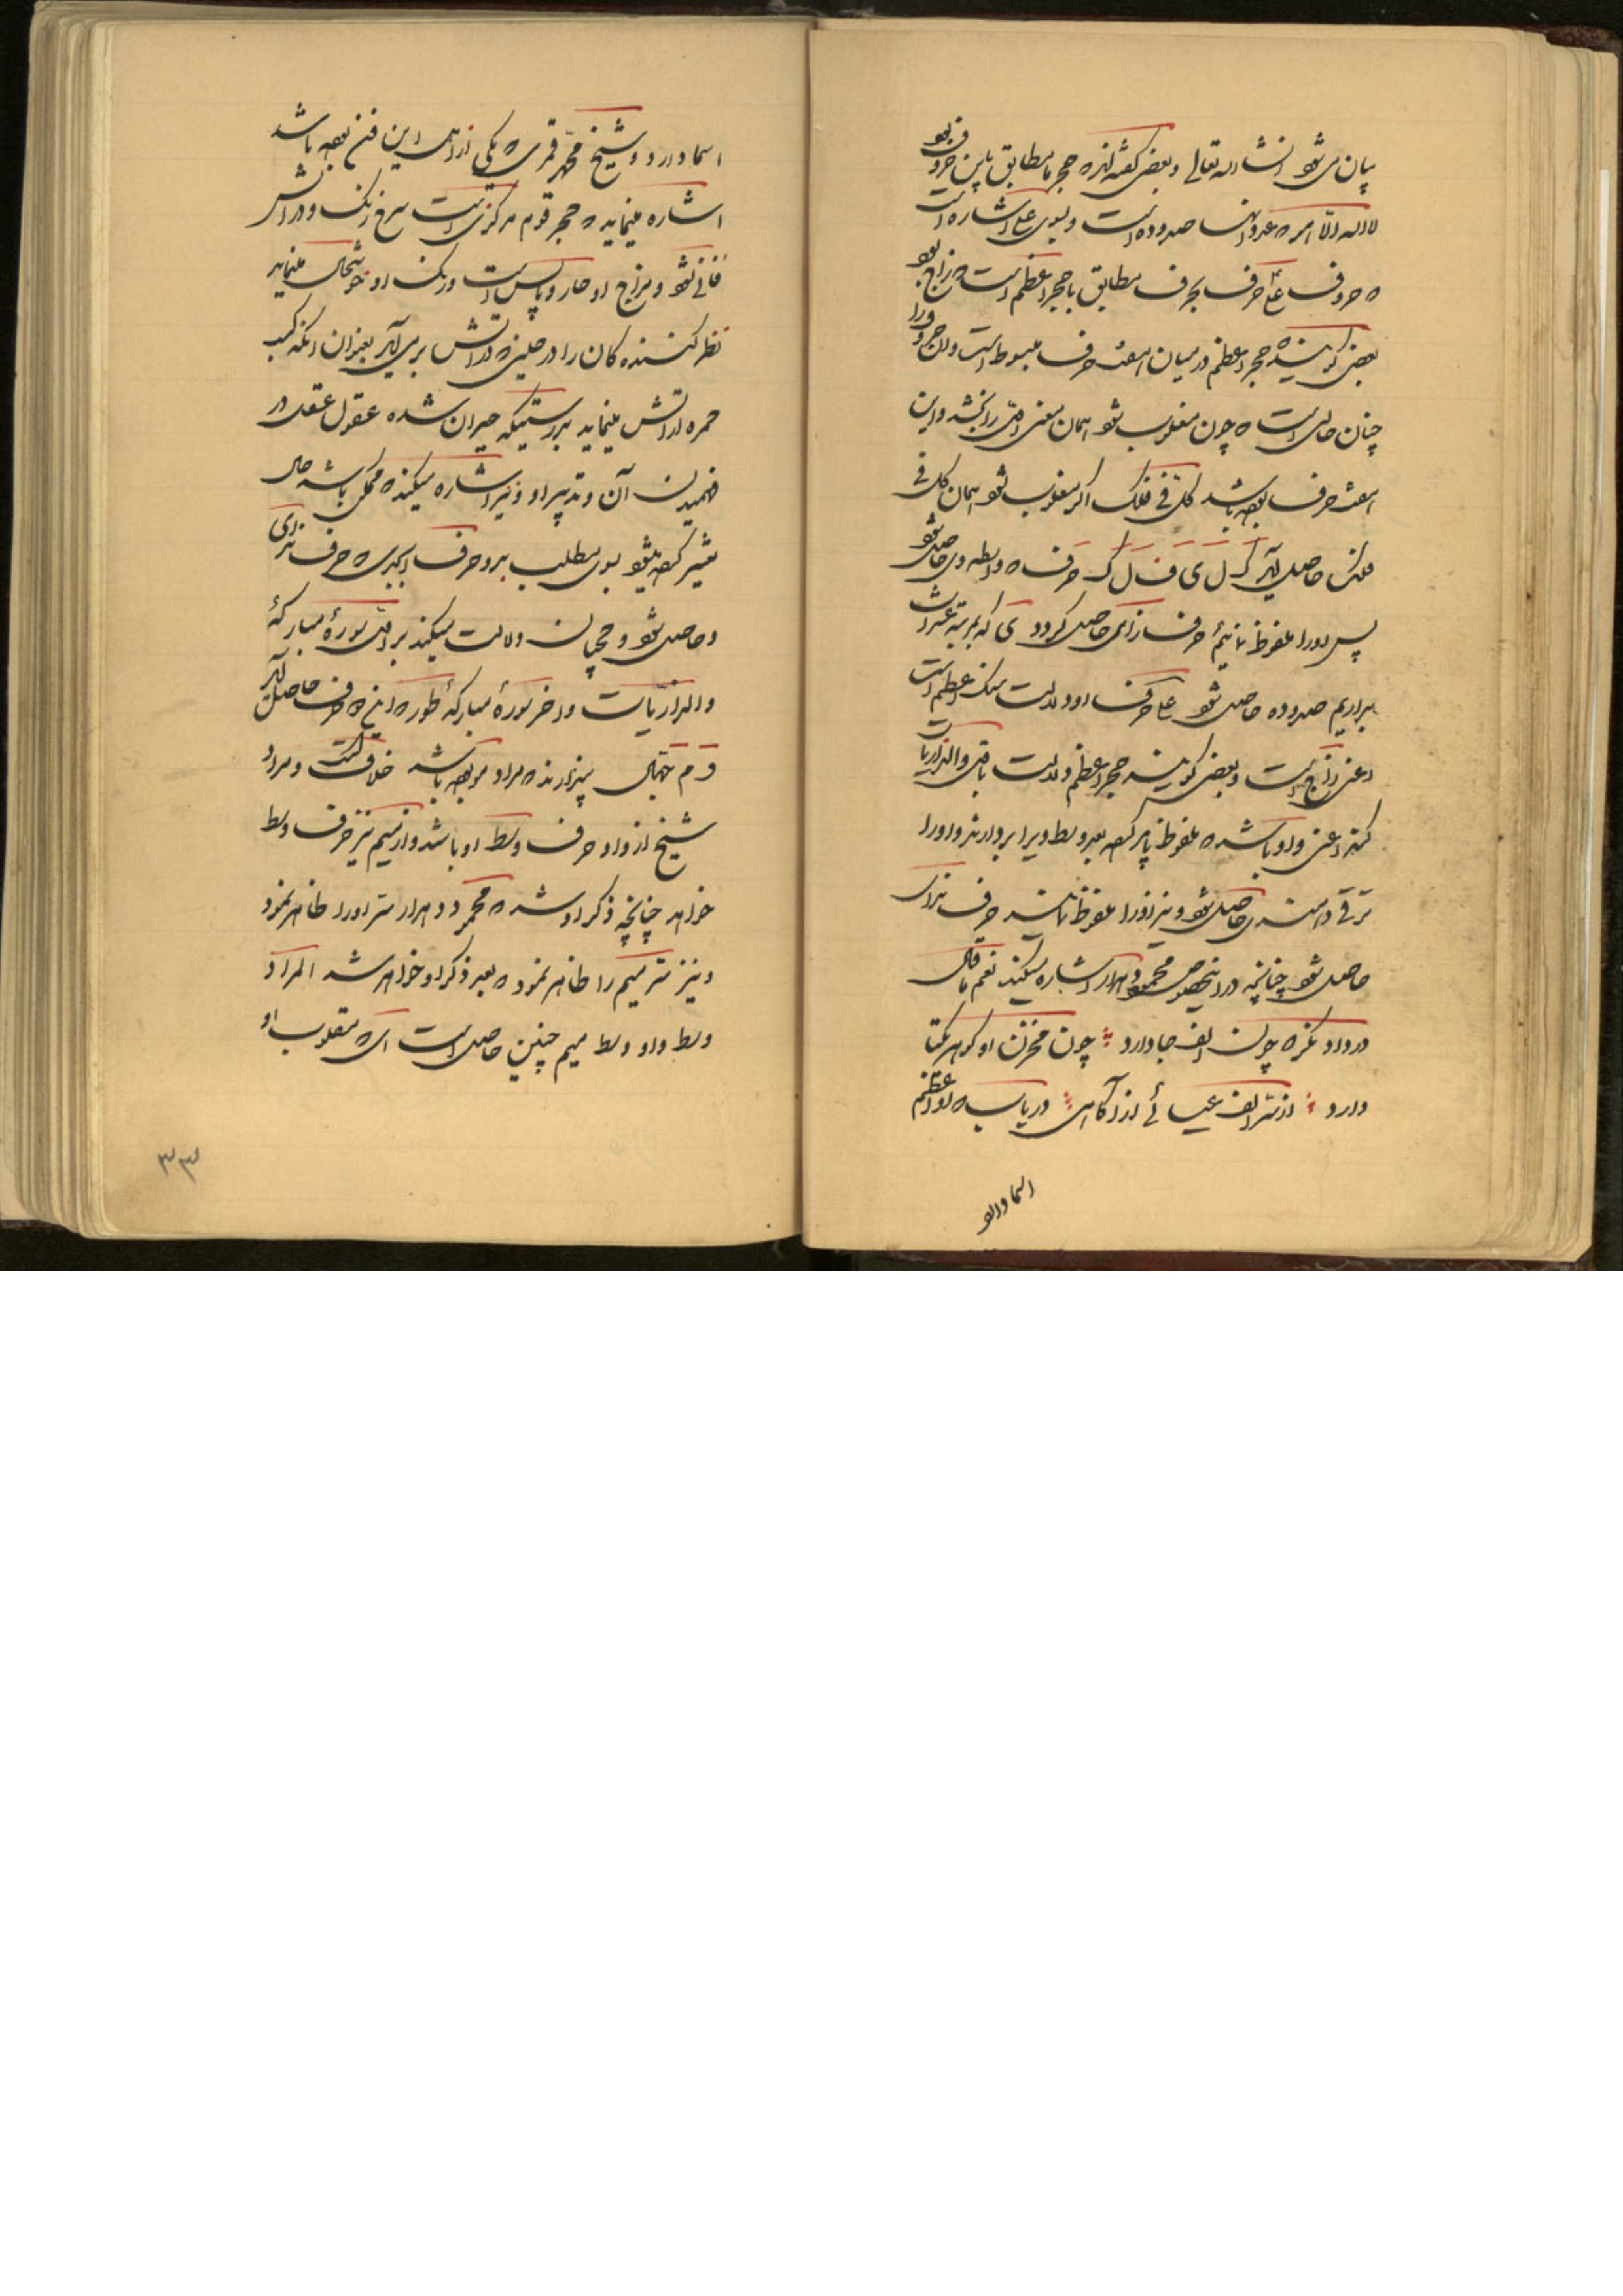 بیان می شود انشاء الله تعالی و بعضی گفته اند که حجر ما مطابق باین حروف بود
لا اله الا الله که عدد آنها صد و ده است و بسوی علی اشاره است
که حروف علی حرف بحرف مطابق با حجر اعظم است که زاج بود
بعضی گویند که حجر اعظم در میان هفت حرف مبسوط است و آن حروف را
چنان حالی است که چون مقلوب شود همان معنی اول را بخشد و این
هفت حرف بوده باشد کل فی فلک اگر مقلوب شود همان کل فی
فلک حاصل آید ک ل ی ف ل ک حرف که واسطه وی حاصل شود
پس او را ملفوظ نمائیم حرف زای حاصل گردد ی که بمرتبه عشرات
بریم صد و ده حاصل شود علی حرف او دلالت سنگ اعظم است
اعنی زاج است و بعضی گویند حجر اعظم دلالت باول والذاریات
کند اعنی واو باشد که ملفوظ باید کرد بعد وسط ویرا بردارند و او را
ترقی دهند ی حاصل شود و نیز او را ملفوظ نمایند حرف
حاصل شود چنانچه در اینخصوص محمود دهدار اشاره میکند نعم ما قال
در واو نگر که چون الف جا دارد چون مخزن او گوهر یکتا
دارد از سر الف عیسائی از آگاهی دریاب که او اعظم
اسما دارد
اسما دارد و شیخ محمد قمری که یکی از اهل این فن بوده باشد
اشاره مینماید که حجر قوم مرکزی است سرخ رنگ و در آتش
فانی نشود و مزاج او حار و یابس است و رنگ او خوشحال مینماید
نظر کننده کان را در حینی که در آتش برمی آید بعنوان آنکه کسب
حمره از آتش مینماید بدرستیکه حیران شده عقول عقلا در
فهمیدن آن و تدبیر او و نیز اشاره میکند که ممکن باشد حال
تغییر کرده میشود بسوی مطلب بدو حرف ابجدی که حرف
و حاصل شود و همچنان دلالت میکند بر اول سوره مبارکه
والذاریات و آخر سوره مبارکه طور که این دو حرف حاصل آید
و م جهال پندارند که مراد مو بوده باشد خلاف است و مراد
شیخ از واو حرف وسط او باشد و از میم نیز حرف وسط
خواهد چنانچه ذکر او شد که محمود دهدار سر او را ظاهر نمود
و نیز سر میم را ظاهر نمود که بعد ذکر او خواهد شد المراد
وسط واو وسط میم چنین حاصل است ای که مقلوب او
۳۳